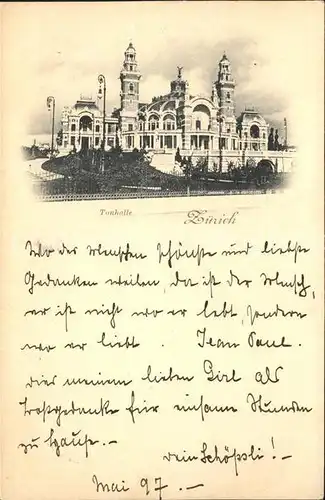 Tonhalle
Zürich
Wo des Menschen schönste und liebste
Gedanken weilen, da ist der Mensch,
er ist nicht wo er lebt, sondern
wo er liebt. Jean Paul.
Dies meinem lieben Girl als
Trostgedanke für einsame Stunden
zu Hause.-
Dein Schöpsli!-
Mai 97.-